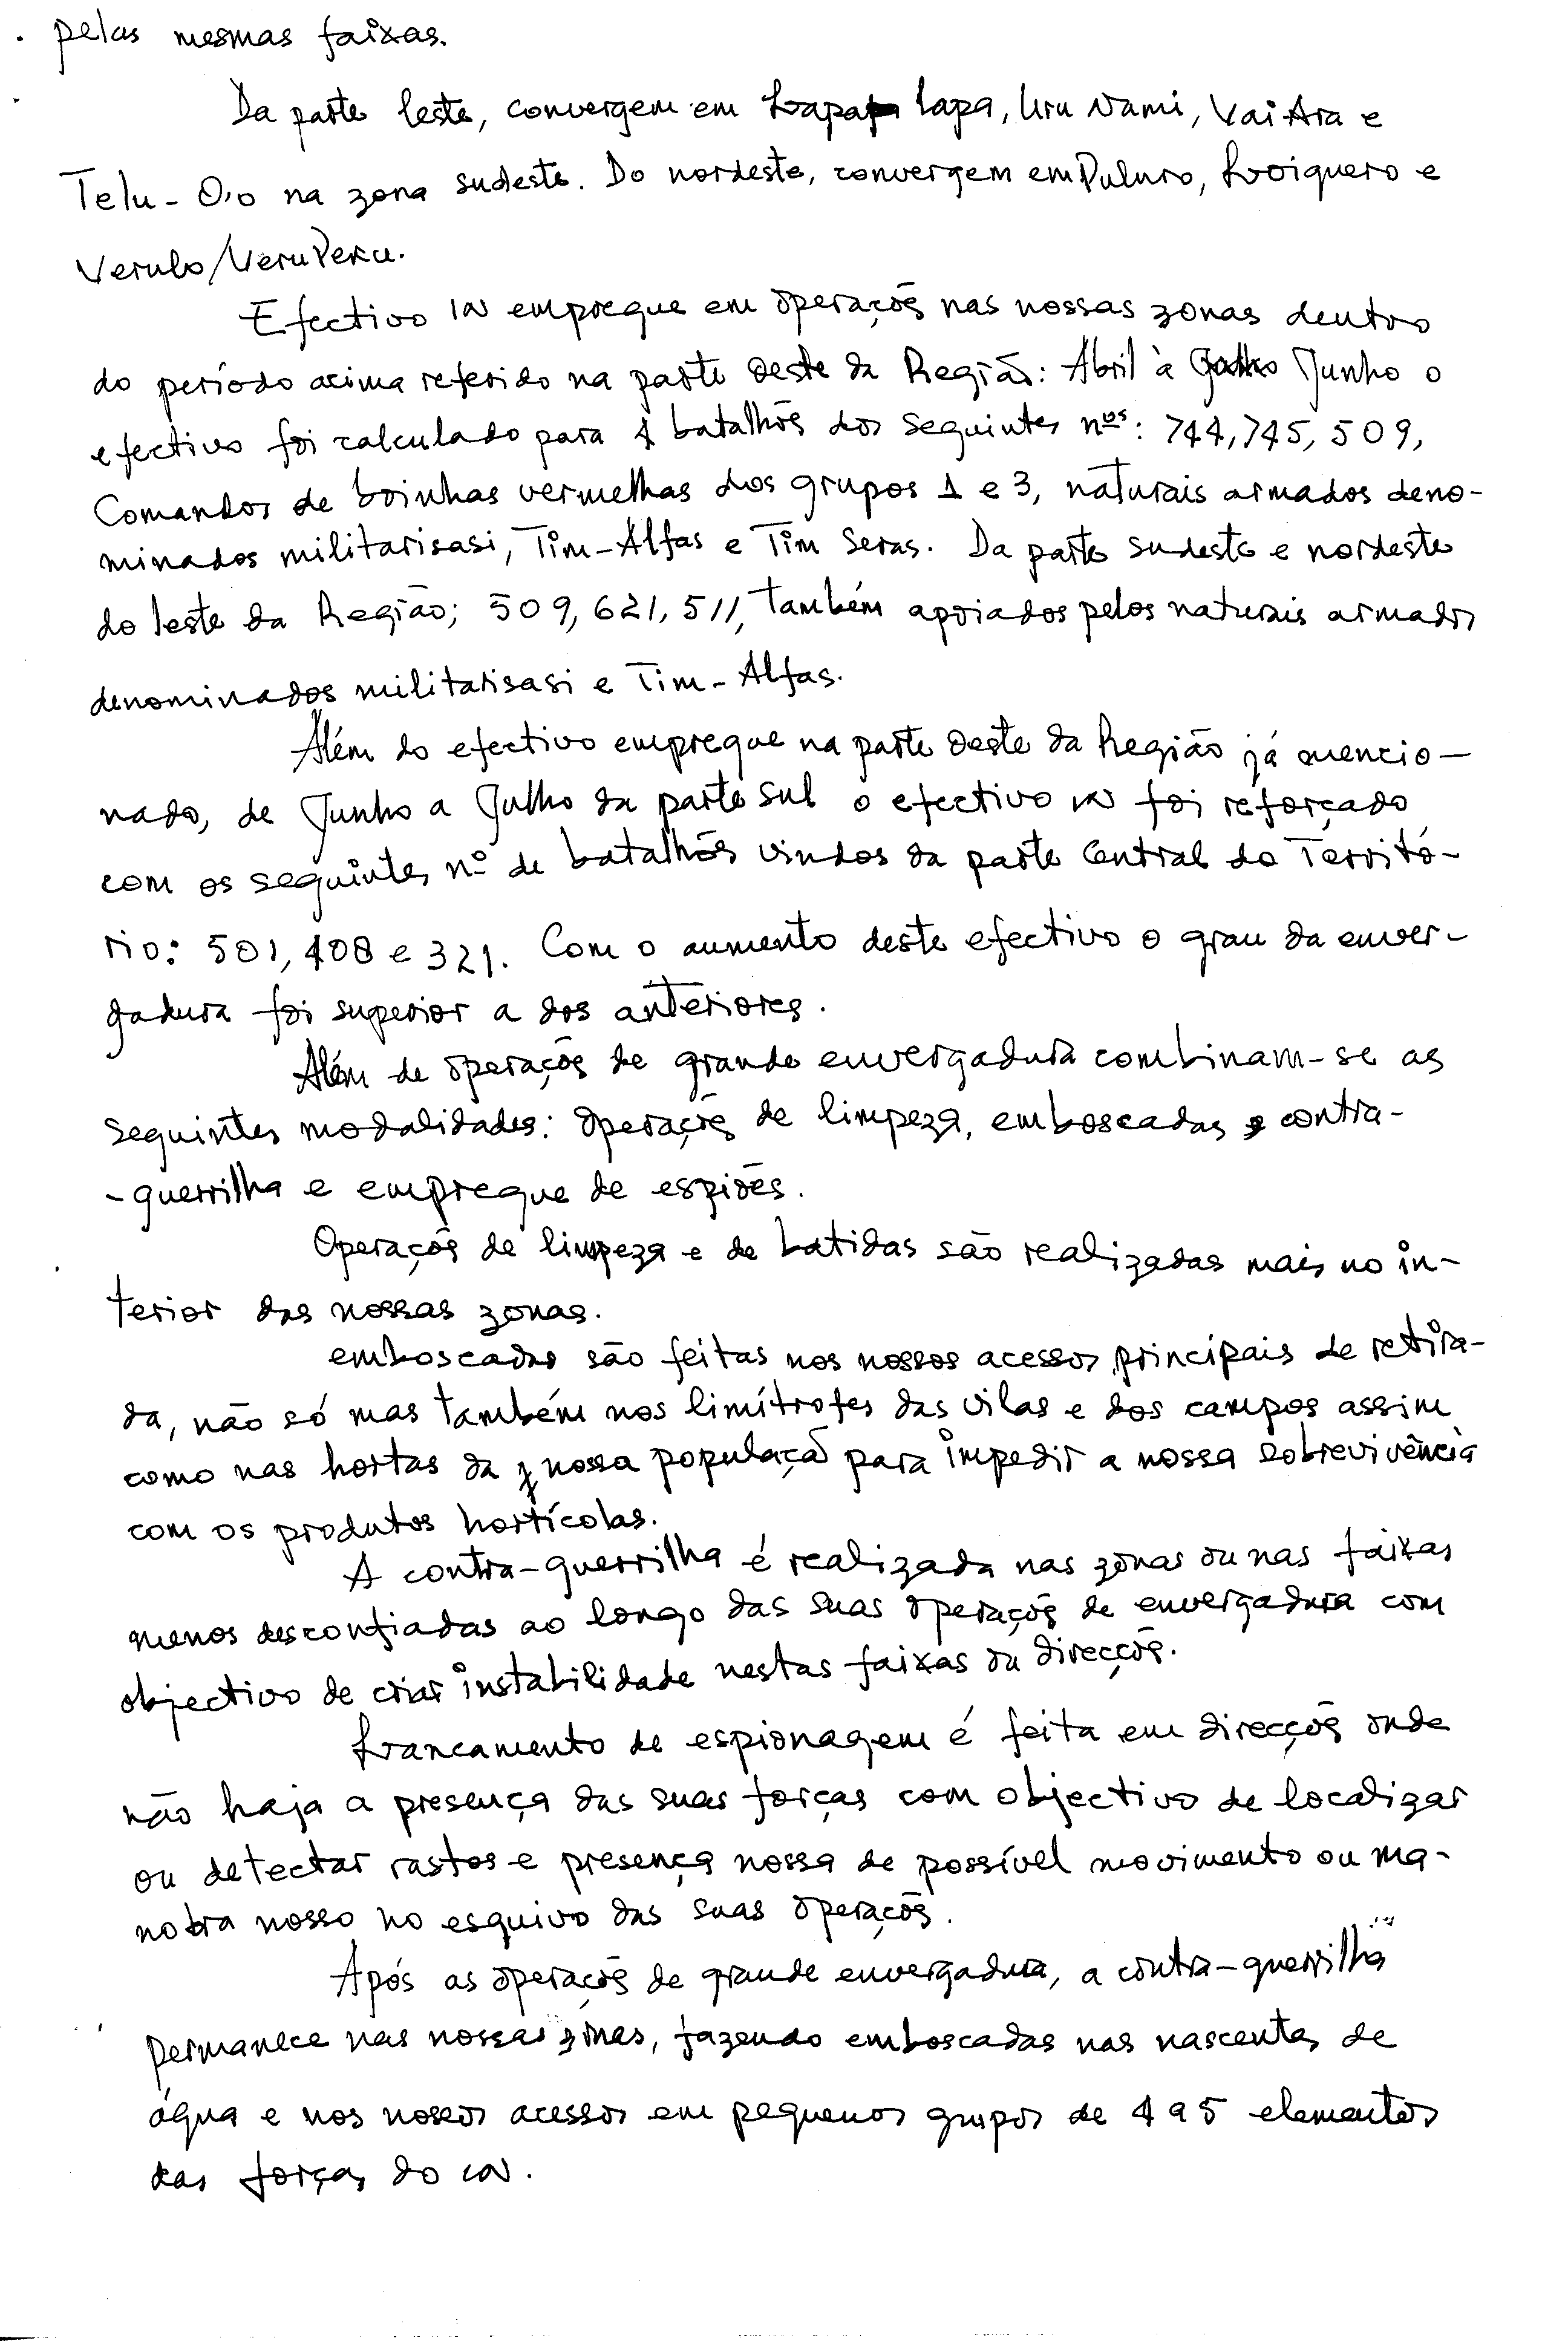 pelas mesmas faixas.
Da parte leste, convergem em Lapa, Uru Nami, Vai Ara e
Telu-O,o na zona sudeste. Do nordeste, convergem em Puluro, Loiquero e
Verulo/Veru Peru.
Efectivo IN empregue em operações nas nossas zonas dentro
do período acima referido na parte oeste da Região: Abril à Junho o
efectivo foi calculado para 4 batalhões dos seguintes nºs: 744, 745, 509,
Comandos de boinhas vermelhas dos grupos 1 e 3, naturais armados deno-
minados militarisasi, Tim-Alfas e Tim Seras. Da parte sudeste e nordeste
do leste da Região; 509, 621, 511, também apoiados pelos naturais armados
denominados militarisasi e Tim-Alfas.
Além do efectivo empregue na parte oeste da Região já mencio-
nado, de Junho a Julho da parte sul o efectivo IN foi reforçado
com os seguintes nº de batalhões vindos da parte Central do Territó-
rio: 501, 408 e 321. Com o aumento deste efectivo o grau da enver-
gadura foi superior a dos anteriores.
Além de operações de grande envergadura combinam-se as
seguintes modalidades: operações de limpeza, emboscadas, contra-
-guerrilha e empregue de espiões.
Operações de limpeza e de batidas são realizadas mais no in-
terior das nossas zonas.
emboscadas são feitas nos nossos acessos principais de retira-
da, não só mas também nos limítrofes das vilas e dos campos assim
como nas hortas da nossa população para impedir a nossa sobrevivência
com os produtos hortícolas.
A contra-guerrilha é realizada nas zonas ou nas faixas
menos desconfiadas ao longo das suas operações de envergadura com
objectivo de criar instabilidade nestas faixas ou direcções.
Francamento de espionagem é feita em direcções onde
não haja a presença das suas forças com objectivo de localizar
ou detectar rastos e presença nossa de possível movimento ou ma-
nobra nosso no esquivo das suas operações.
Após as operações de grande envergadura, a contra-guerrilha
permanece nas nossas zonas, fazendo emboscadas nas nascentes de
água e nos nossos acessos em pequenos grupos de 4 a 5 elementos
das forças do IN.